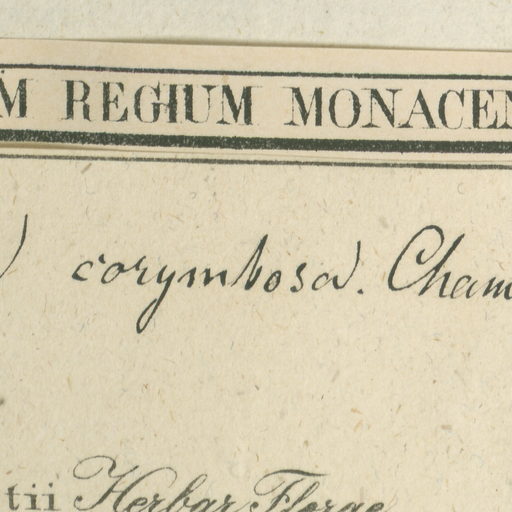 M REGIUM MONACEN
corymbosa. Cham
tii Herbar. Florae